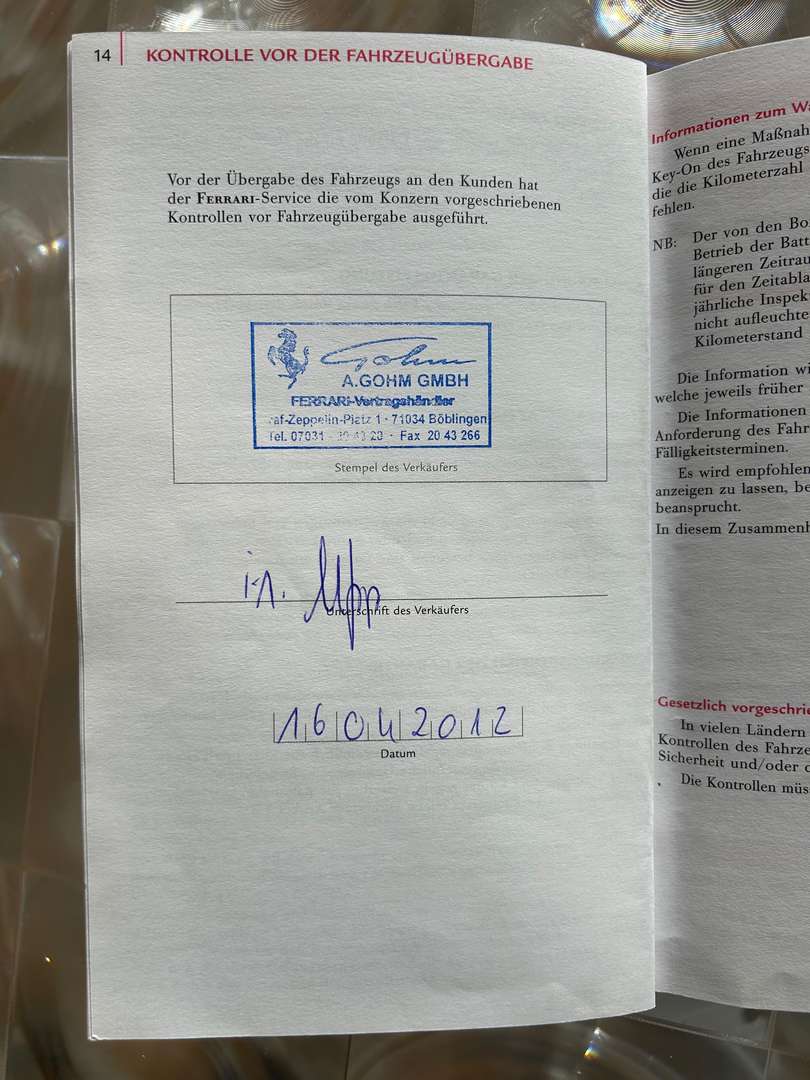 14 KONTROLLE VOR DER FAHRZEUGÜBERGABE
Vor der Übergabe des Fahrzeugs an den Kunden hat
der FERRARI-Service die vom Konzern vorgeschriebenen
Kontrollen vor Fahrzeugübergabe ausgeführt.
Gohm
A.GOHM GMBH
FERRARI-Vertragshändler
raf-Zeppelin-Platz 1 · 71034 Böblingen
Tel. 07031 - 20 43 · Fax 20 43 266
Stempel des Verkäufers
Unterschrift des Verkäufers
16042012
Datum
Informationen zum Wa
Wenn eine Maßnah
Key-On des Fahrzeugs
die die Kilometerzahl
fehlen.
NB: Der von den Bo
Betrieb der Batt
längeren Zeitrau
für den Zeitabla
jährliche Inspek
nicht aufleuchte
Kilometerstand
Die Information wi
welche jeweils früher
Die Informationen
Anforderung des Fahr
Fälligkeitsterminen.
Es wird empfohlen
anzeigen zu lassen, be
beansprucht.
In diesem Zusammenh
Gesetzlich vorgeschrie
In vielen Ländern
Kontrollen des Fahrze
Sicherheit und/oder d
Die Kontrollen müs